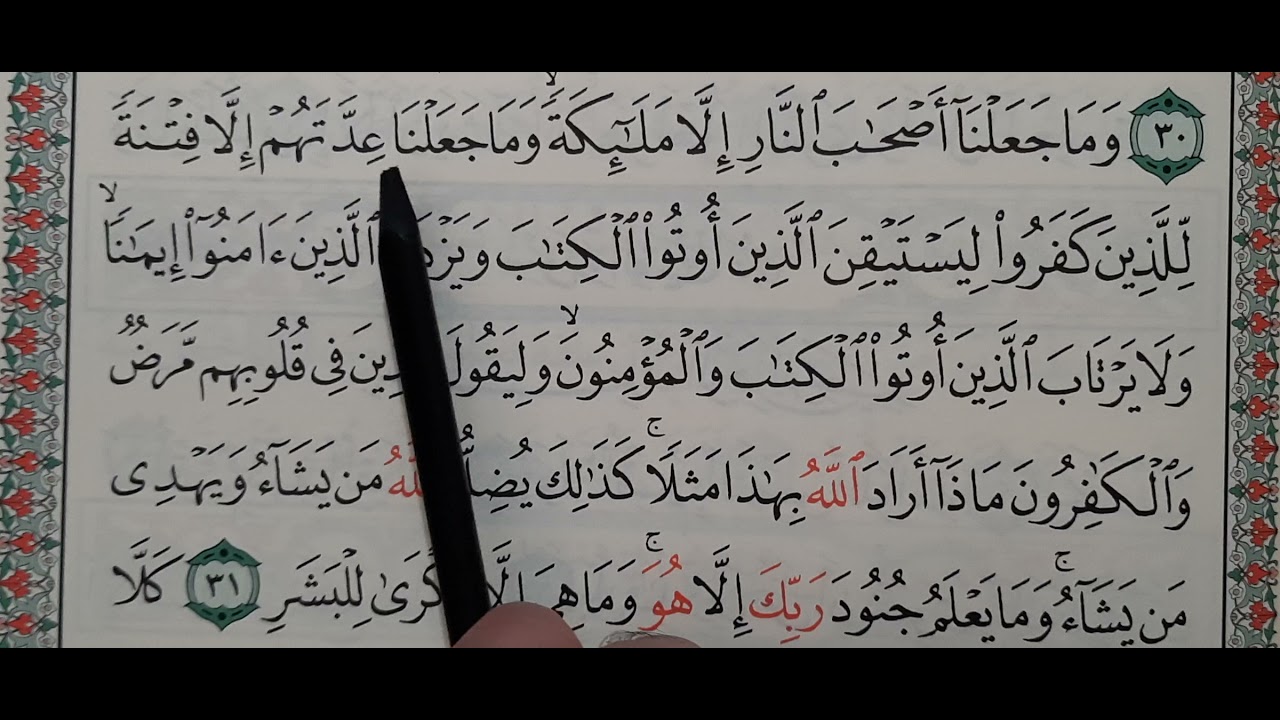 ٣٠ وَمَا جَعَلْنَآ أَصْحَٰبَ ٱلنَّارِ إِلَّا مَلَٰٓئِكَةًۙ وَمَا جَعَلْنَا عِدَّتَهُمْ إِلَّا فِتْنَةً
لِّلَّذِينَ كَفَرُوا۟ لِيَسْتَيْقِنَ ٱلَّذِينَ أُوتُوا۟ ٱلْكِتَٰبَ ٱلَّذِينَ ءَامَنُوٓا۟ إِيمَٰنًاۙ
وَلَا يَرْتَابَ ٱلَّذِينَ أُوتُوا۟ ٱلْكِتَٰبَ وَٱلْمُؤْمِنُونَۙ وَلِيَقُولَ فِى قُلُوبِهِم مَّرَضٌ
وَٱلْكَٰفِرُونَ مَاذَآ أَرَادَ ٱللَّهُ بِهَٰذَا مَثَلًاۚ كَذَٰلِكَ يُضِلُّ ٱللَّهُ مَن يَشَآءُ وَيَهْدِى
مَن يَشَآءُۚ وَمَا يَعْلَمُ جُنُودَ رَبِّكَ إِلَّا هُوَۚ وَمَا هِىَ إِلَّا لِلْبَشَرِ ٣١ كَلَّا